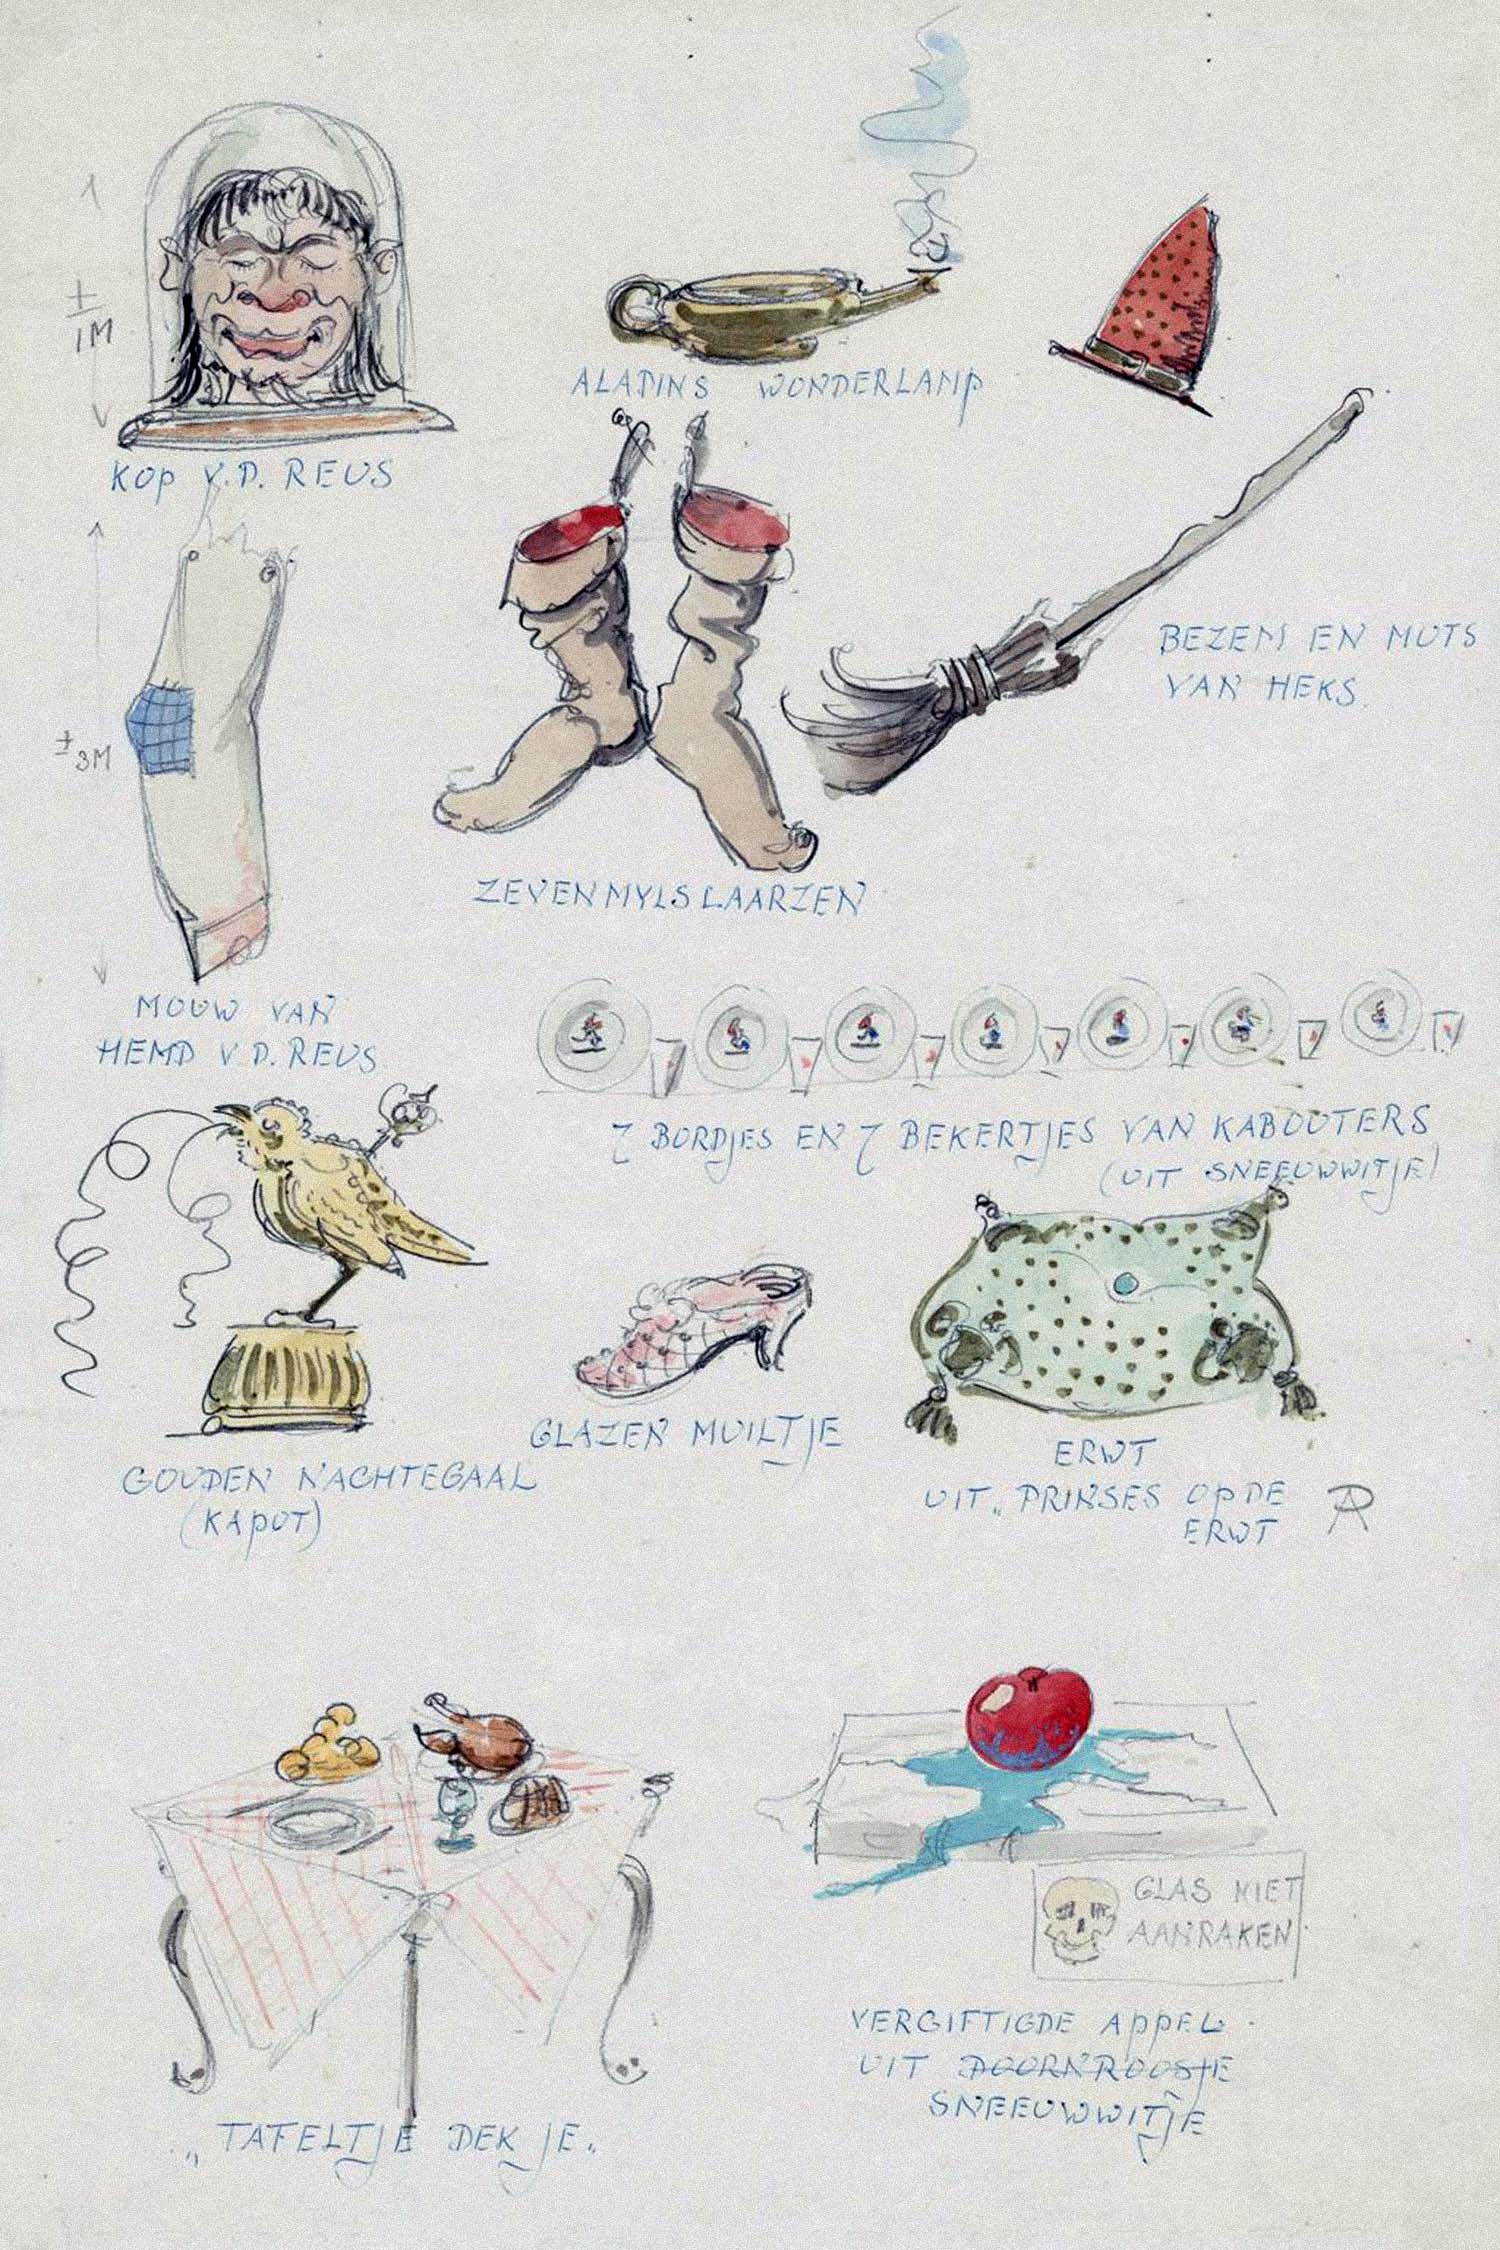 ±
1M
KOP V.D. REUS
ALADINS WONDERLAMP
BEZEM EN MUTS
VAN HEKS.
±3M
ZEVENMYLSLAARZEN
MOUW VAN
HEMD V.D. REUS
7 BORDJES EN 7 BEKERTJES VAN KABOUTERS
(UIT SNEEUWWITJE)
GOUDEN NACHTEGAAL
(KAPOT)
GLAZEN MUILTJE
ERWT
UIT „PRINSES OP DE
ERWT
„TAFELTJE DEK JE"
GLAS NIET
AANRAKEN
VERGIFTIGDE APPEL
UIT DOORNROOSJE
SNEEUWWITJE